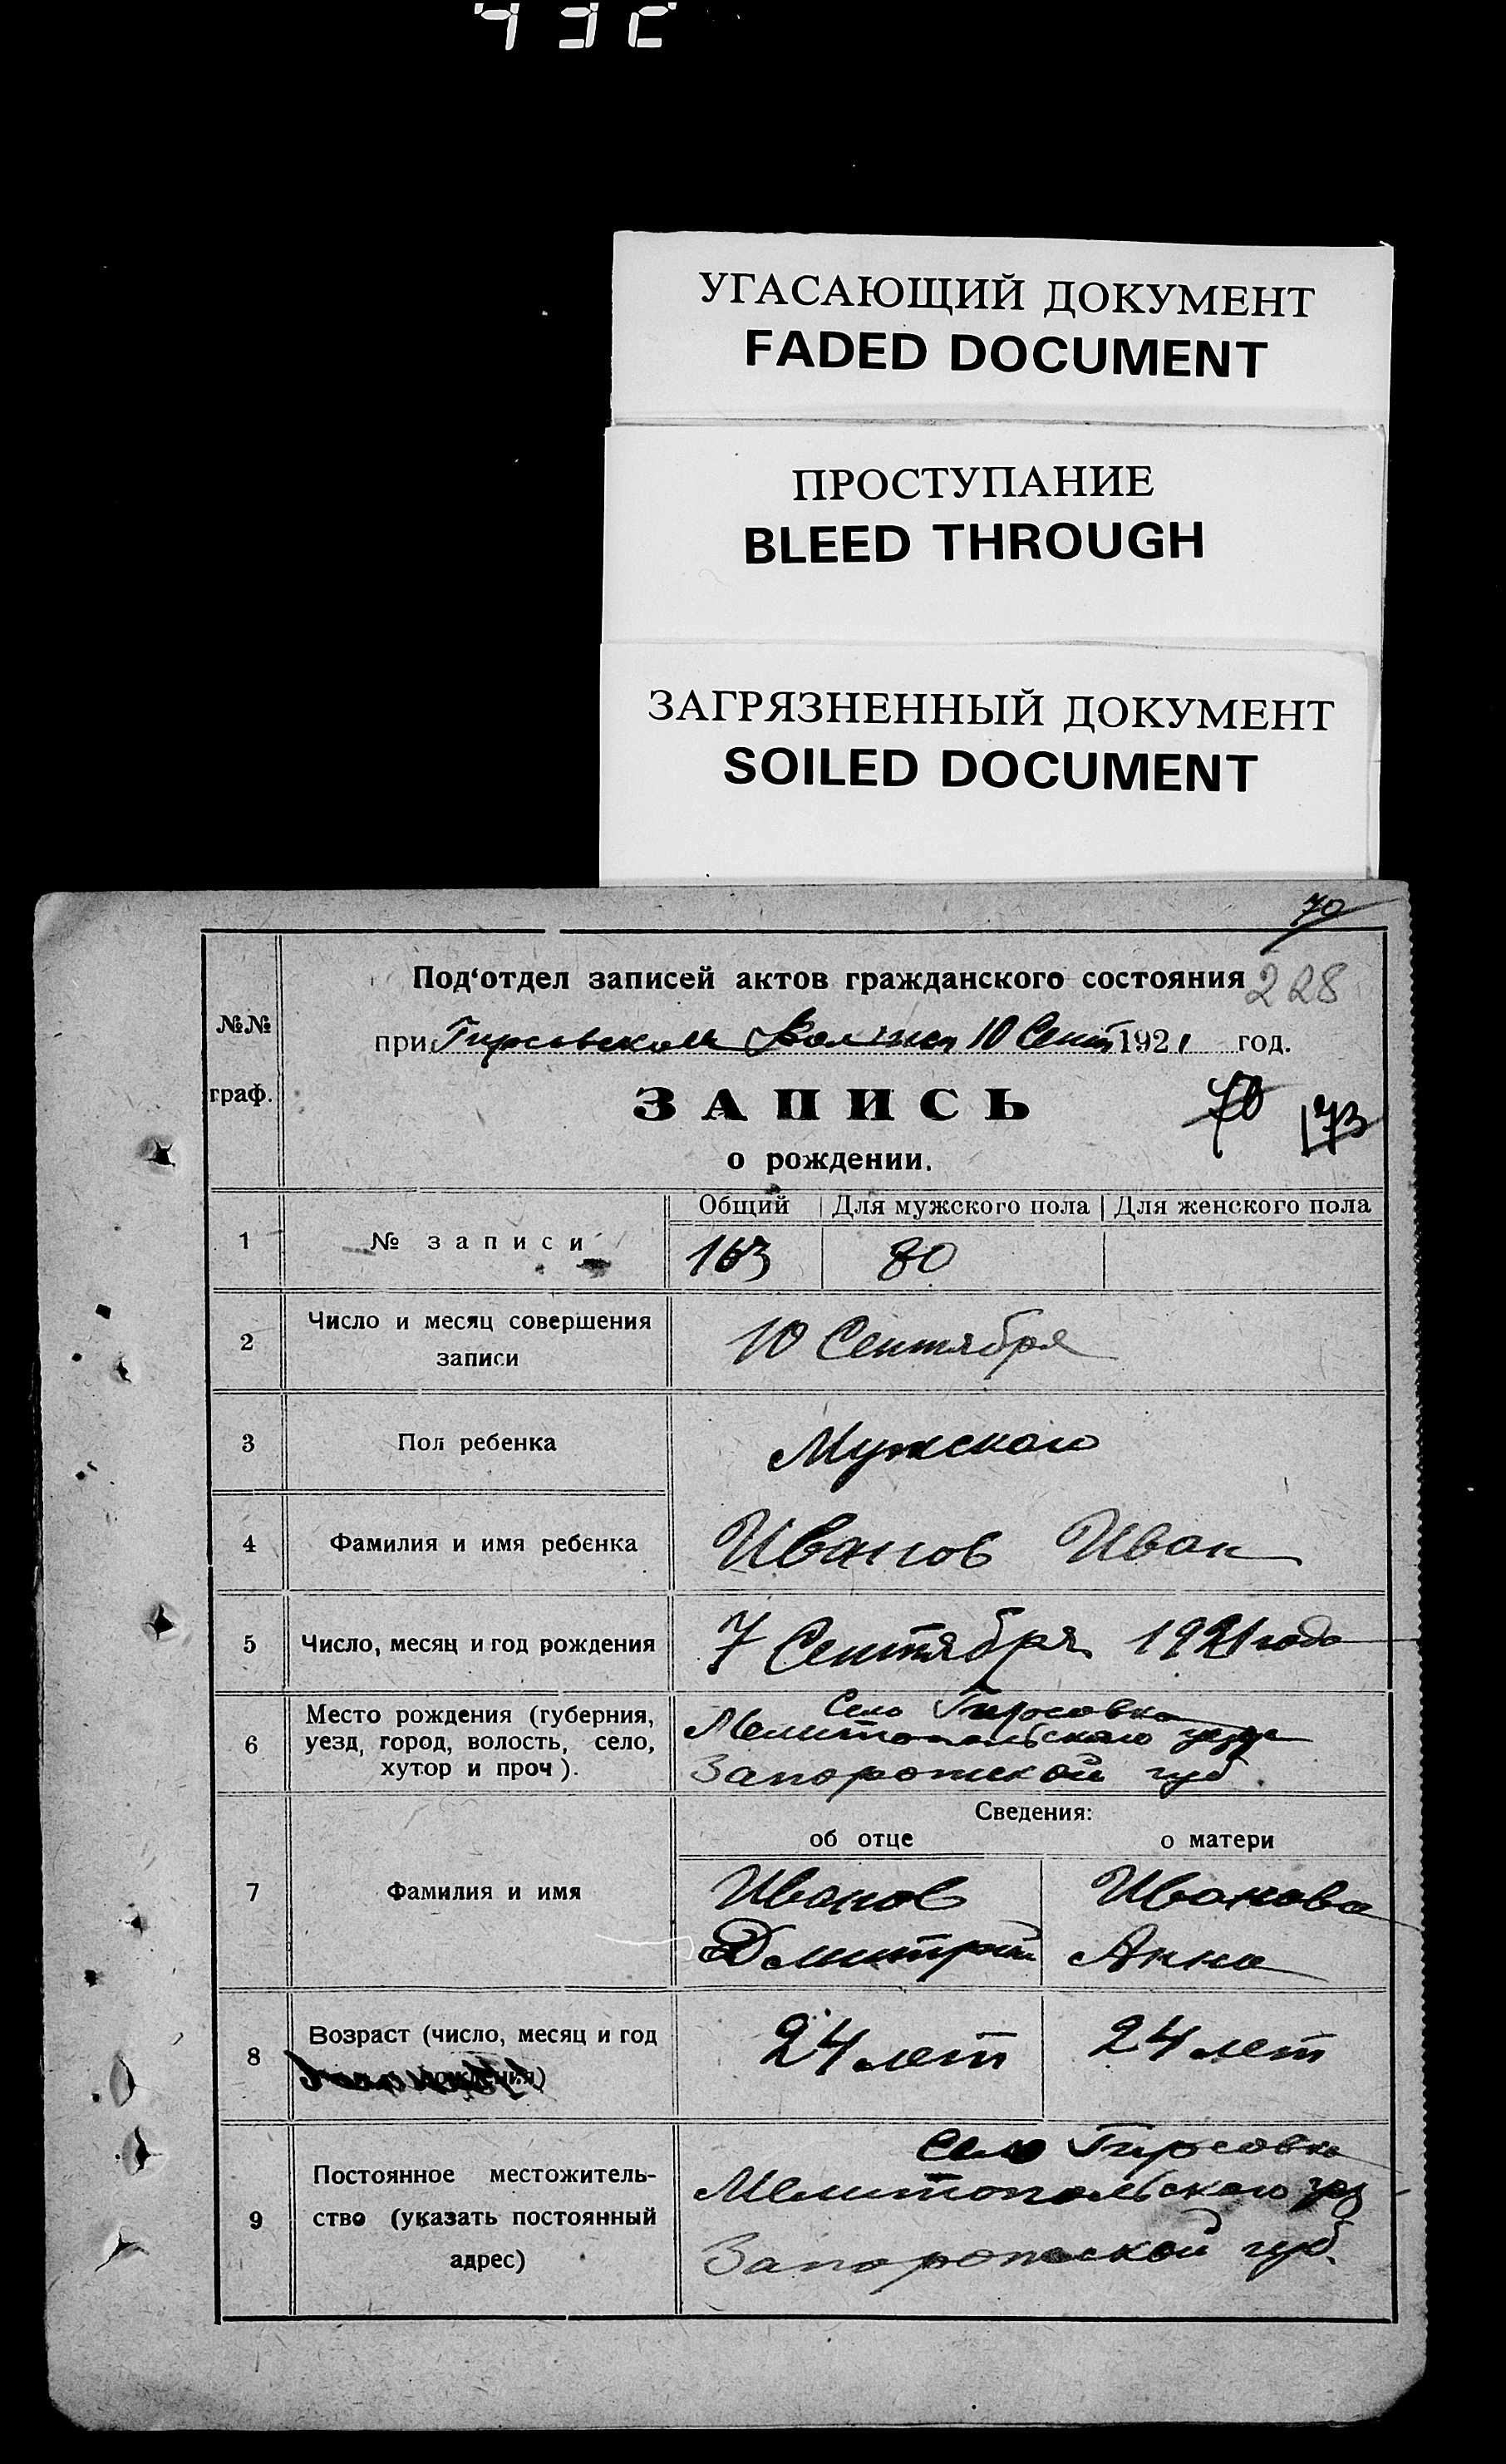 УГАСАЮЩИЙ ДОКУМЕНТ
FADED DOCUMENT
ПРОСТУПАНИЕ
BLEED THROUGH
ЗАГРЯЗНЕННЫЙ ДОКУМЕНТ
SOILED DOCUMENT
70
Под‘отдел записей актов гражданского состояния
228
при Гирсовском 10 Сент 1921 год.
№№
граф.
ЗАПИСЬ
70 173
о рождении.
Общий Для мужского пола Для женского пола
1 № записи 163 80
2 Число и месяц совершения
записи
10 Сентября
3 Пол ребенка Мужского
4 Фамилия и имя ребенка Иванов Иван
5 Число, месяц и год рождения 7 Сентября 1921 года
6 Место рождения (губерния,
уезд, город, волость, село,
хутор и проч).
Село Гирсовка
Мелитопольского уезда
Запорожской губ.
Сведения:
об отце о матери
7 Фамилия и имя
Иванов Иванова
Дмитрий Анна
8 Возраст (число, месяц и год
24 лет 24 лет
9 Постоянное местожитель-
ство (указать постоянный
адрес)
Село Гирсовка
Мелитопольского уез
Запорожской губ.